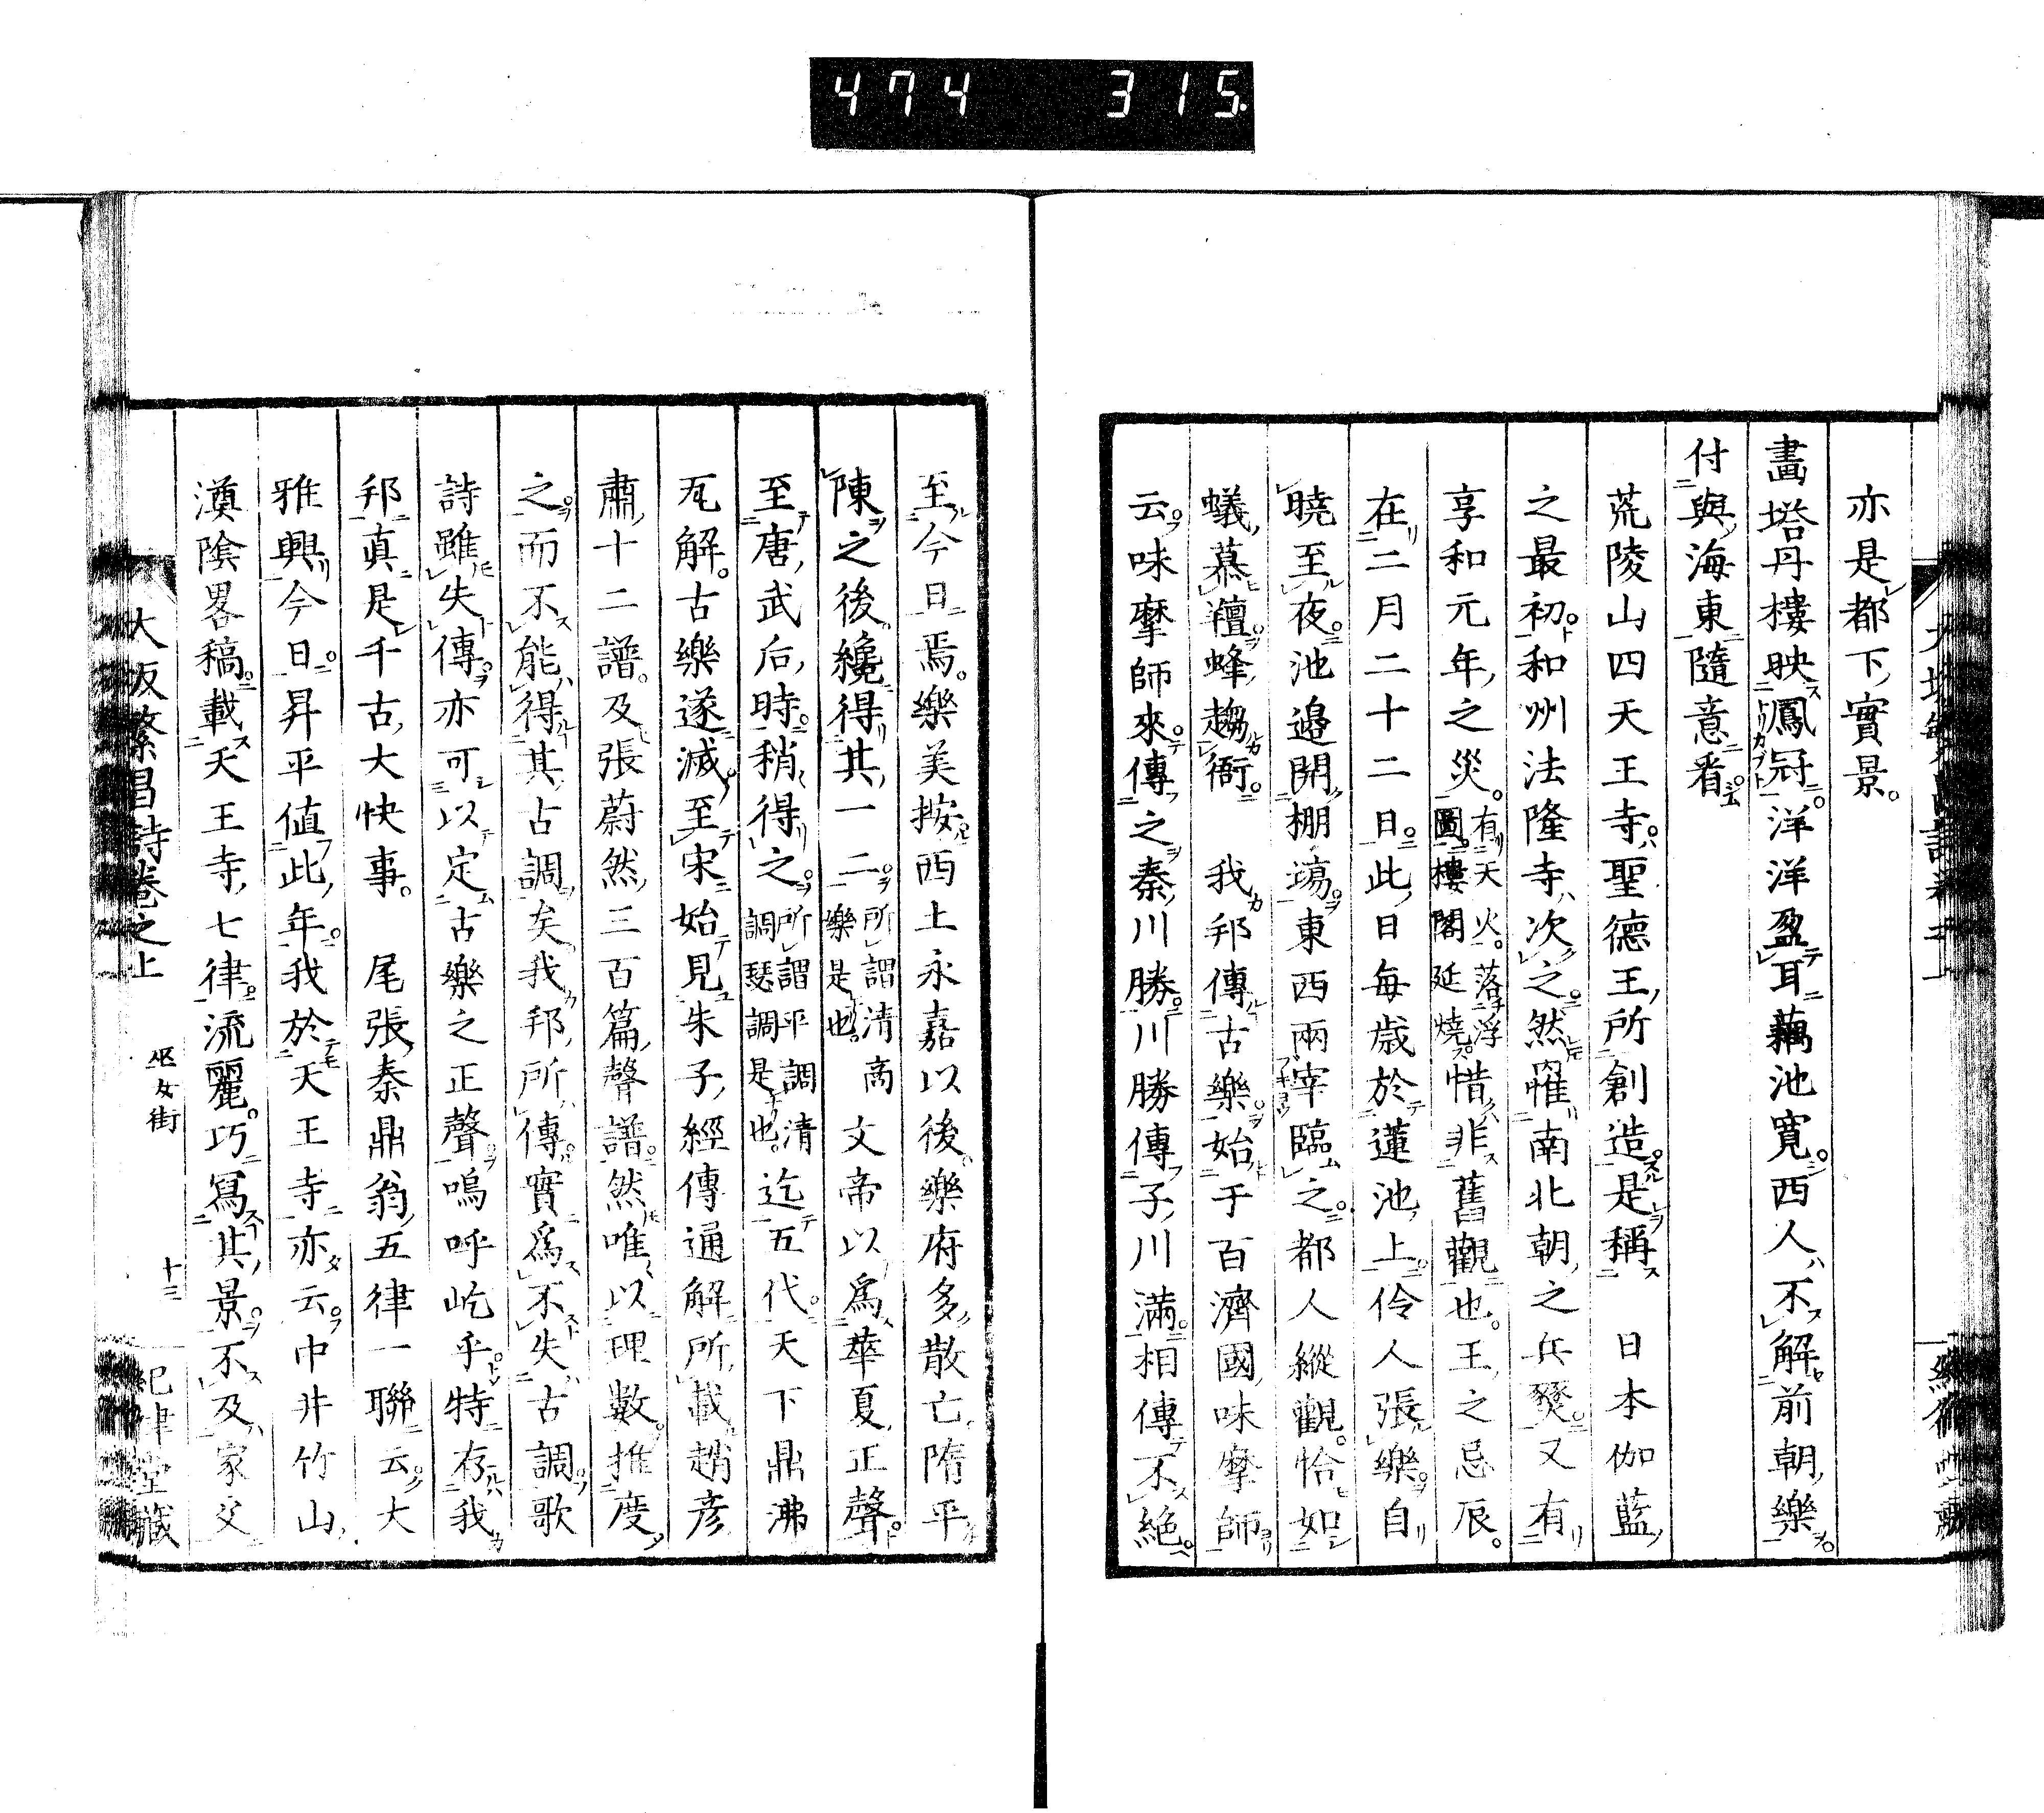 474 315
亦是都下實景。
畫塔丹樓映鳳冠洋洋盈耳藕池寬西人不解前朝樂
付與海東隨意看
荒陵山四天王寺聖德王所創造是稱 日本伽藍
之最初和州法隆寺次之然罹南北朝之兵燹又有
享和元年之災。有天火。落浮圖。樓閣延燒惜非舊觀也。王之忌辰。
在二月二十二日此日每歲於蓮池上伶人張樂自
曉至夜池邉開棚場東西兩宰臨之都人縱觀。恰如
蟻慕羶蜂趨衙。 我邦傳古樂始于百濟國味摩師
云味摩師來傳之秦川勝川勝傳子川滿相傳不絶
至今日焉。樂美按西土永嘉以後樂府多散亡隋平
陳之後纔得其一二所謂清商樂是也。文帝以爲華夏正聲。
至唐武后時稍得之所謂平調清調瑟調是也。迄五代天下鼎沸
瓦解。古樂遂滅至宋始見朱子經傳通解所載趙彦
肅十二譜。及張蔚然三百篇聲譜然唯以理數推度
之而不能得其古調矣我邦所傳實爲不失古調歌
詩雖失傳亦可以定古樂之正聲嗚呼屹乎特存我
邦眞是千古大快事。 尾張秦鼎翁五律一聯云大
雅興今日昇平値此年我於天王寺亦云中井竹山
漢陰畧稿載天王寺七律流麗巧寫其景不及家父
大坂繁昌詩卷之上 巫女街 十三